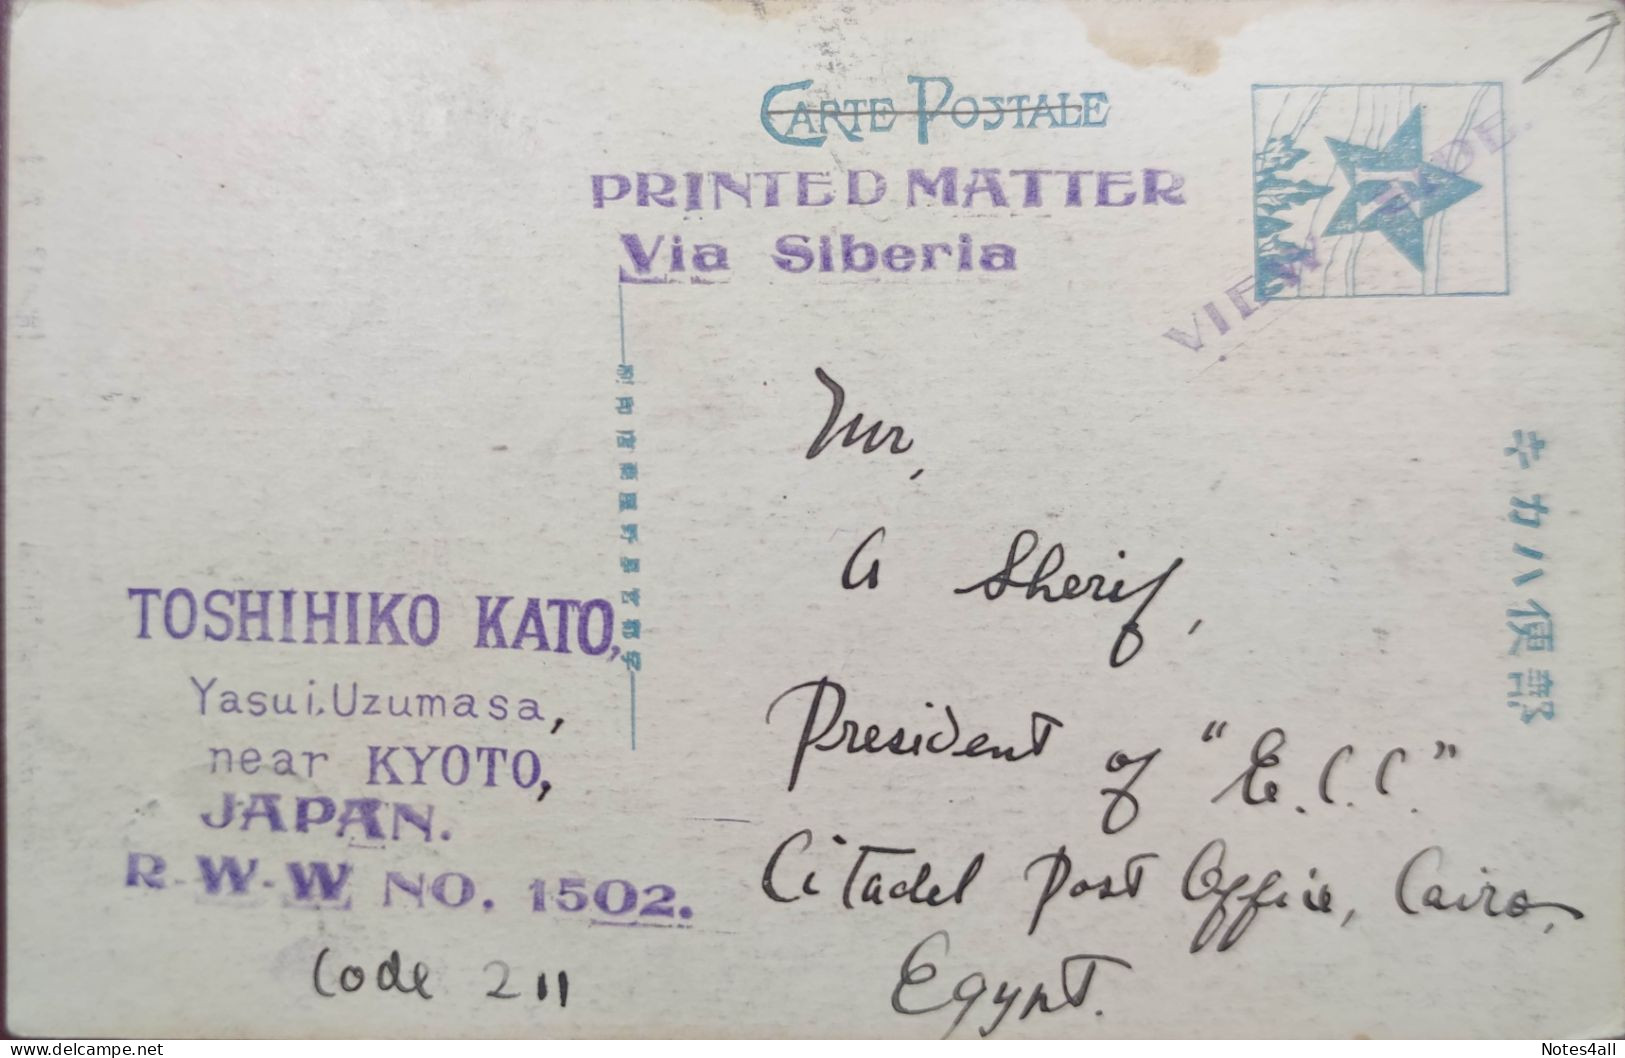 CARTE POSTALE
PRINTED MATTER
Via Siberia
VIEW SIDE.
Mr,
A Sherif,
President of "E.C.C."
Citadel Post Office, Cairo,
Egypt.
TOSHIHIKO KATO,
Yasui, Uzumasa,
near KYOTO,
JAPAN.
R-W-W NO. 1502.
Code 211
キカハ便郵
delcampe.net
Notes4all